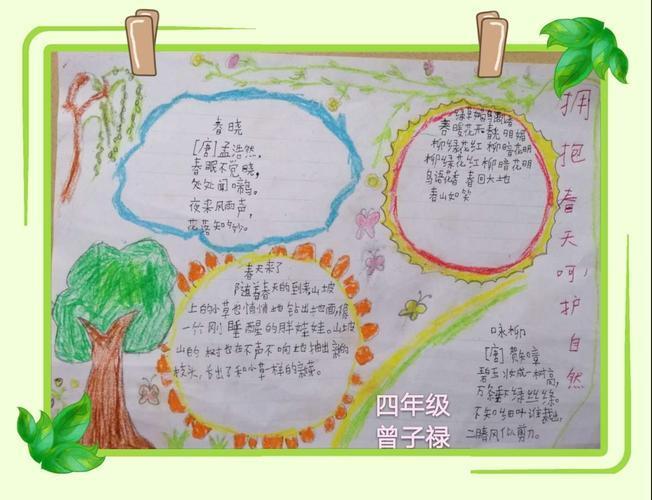 春晓
[唐]孟浩然,
春眠不觉晓,
处处闻啼鸟。
夜来风雨声,
花落知多少。
春暖花开 明媚
柳绿花红 柳暗花明
柳绿花红 柳暗花明
鸟语花香 春回大地
春山如笑
拥抱春天呵护自然
春天来了
随着春天的到来山坡
上的小草也悄悄地钻出地面像
一个刚睡醒的胖娃娃。山坡
山的树也在不声不响地抽出新的
枝头,长出了和小草一样的新芽。
咏柳
[唐]贺知章
碧玉妆成一树高,
万条垂下绿丝绦。
不知细叶谁裁出,
二月春风似剪刀。
四年级
曾子禄